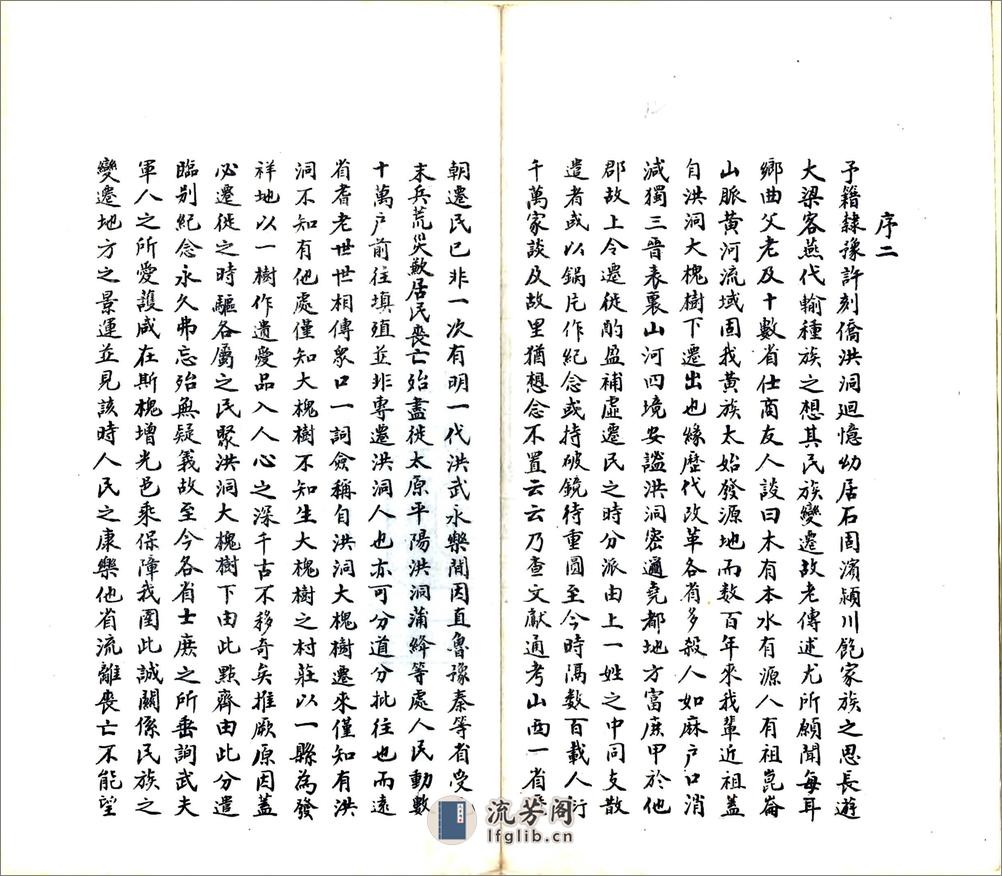 序二
予籍隸豫許刻僑洪洞迴憶幼居石固濱潁川飽家族之思長遊
大梁客燕代輸種族之想其民族變遷故老傳述尤所願聞每耳
鄉曲父老及十數省仕商友人談曰木有本水有源人有祖崑崙
山脈黃河流域固我黃族太始發源地而数百年來我輩近祖蓋
自洪洞大槐樹下遷出也緣歷代改革各省多殺人如麻户口消
減獨三晉表裏山河四境安謐洪洞密邇堯都地方富庶甲於他
郡故上令遷徙酌盈補虛遷民之時分派由上一姓之中同支散
遣者或以鍋片作紀念或持破鏡待重圓至今時隔数百載人衍
千萬家談及故里猶想念不置云云乃查文獻通考山西一省
朝遷民已非一次有明一代洪武永樂間因直魯豫秦等省受
末兵荒災歉居民喪亡殆盡徙太原平陽洪洞蒲絳等處人民動數
十萬户前往填殖並非專遷洪洞人也亦可分道分批往也而遠
省耆老世世相傳眾口一詞僉稱自洪洞大槐樹遷來僅知有洪
洞不知有他處僅知大槐樹不知生大槐樹之村莊以一縣為發
祥地以一樹作遺愛品入人心之深千古不移奇矣推厥原因蓋
必遷徙之時驅各屬之民聚洪洞大槐樹下由此點齊由此分遣
臨别紀念永久弗忘殆無疑義故至今各省士庶之所垂詢武夫
軍人之所愛護咸在斯槐增光邑乘保障我圉此誠關係民族之
變遷地方之景運並見該時人民之康樂他省流離喪亡不能望
流芳阁
lfglib.cn